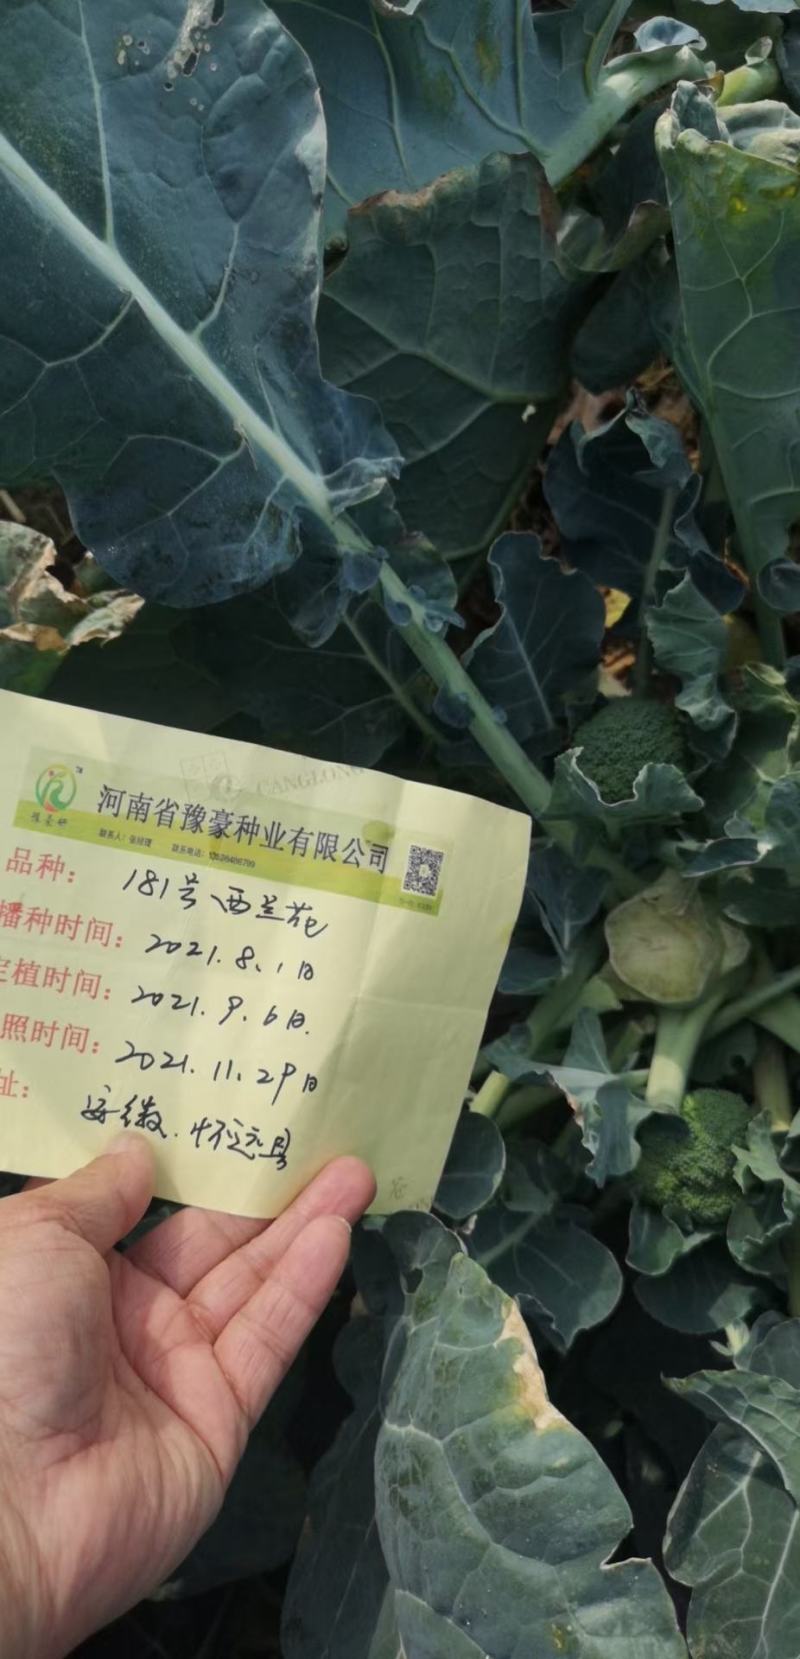 CANGLONG
河南省豫豪种业有限公司
豫豪研
联系人：张经理 联系电话：
品种： 181号西兰花
播种时间： 2021.8.1日
定植时间： 2021.9.6日.
照时间： 2021.11.29日
址： 安徽.怀远县